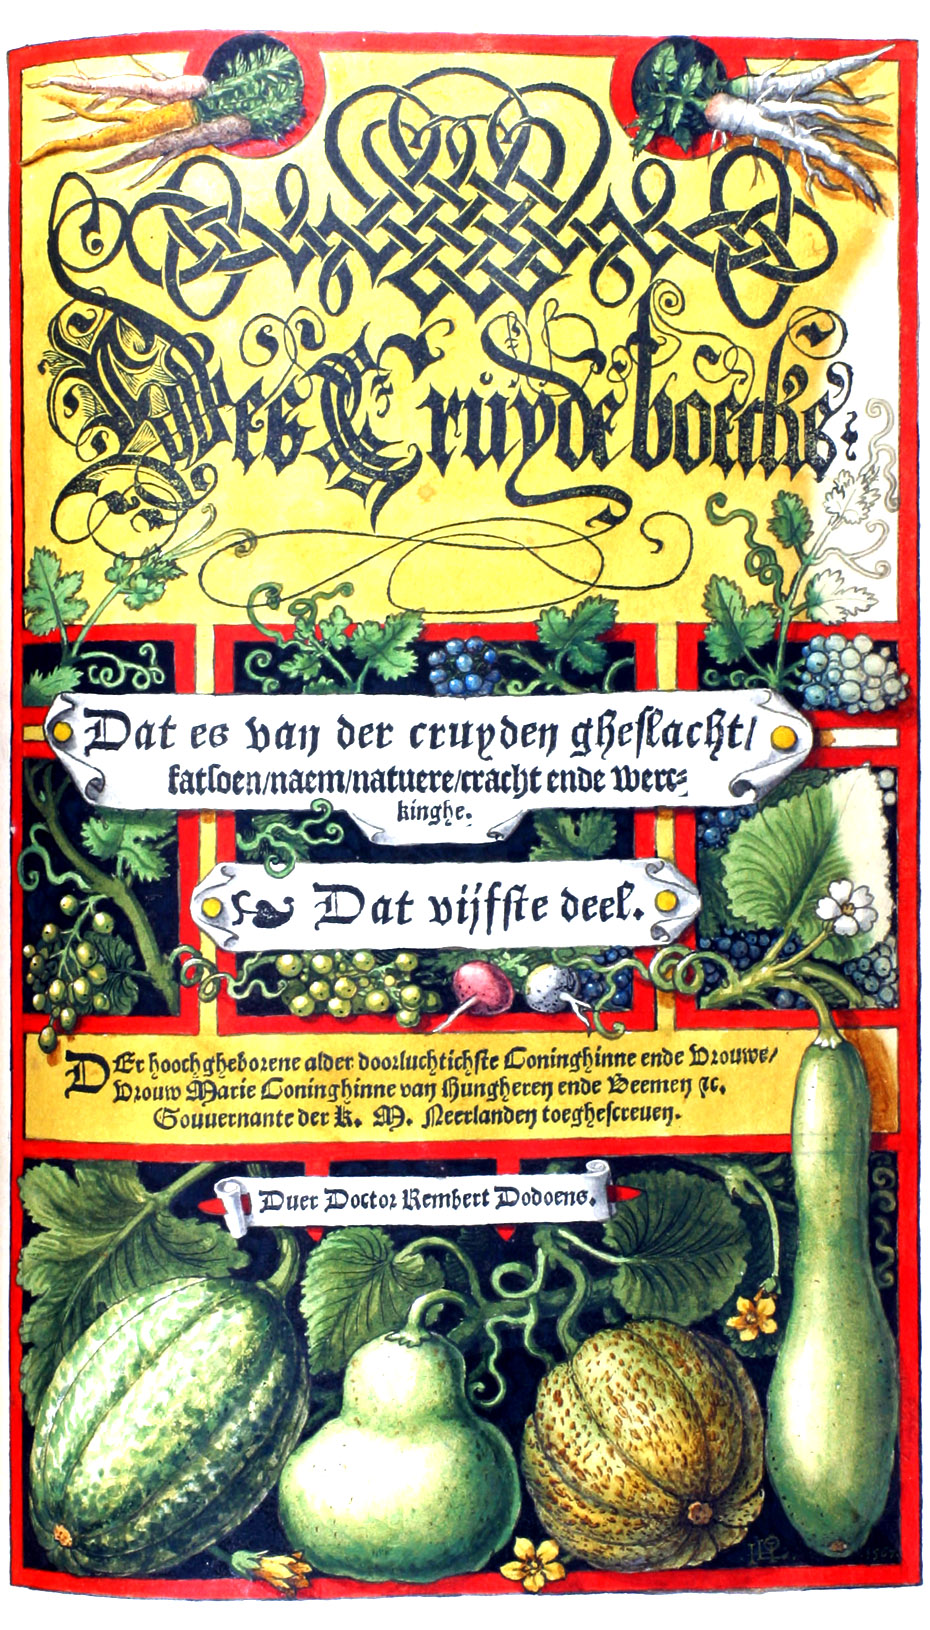 Des Cruydeboecks
Dat es van der cruyden gheslacht/
fatsoen/naem/natuere/cracht ende werc⸗
kinghe.
Dat vijfste deel.
DEr hoochgheborene alder doorluchtichste Coninghinne ende Vrouwe/
Vrouw Marie Coninghinne van Hungheren ende Beemen ⁊c.
Gouvernante der K. M. Neerlanden toeghescreven.
Duer Doctor Rembert Dodoens.